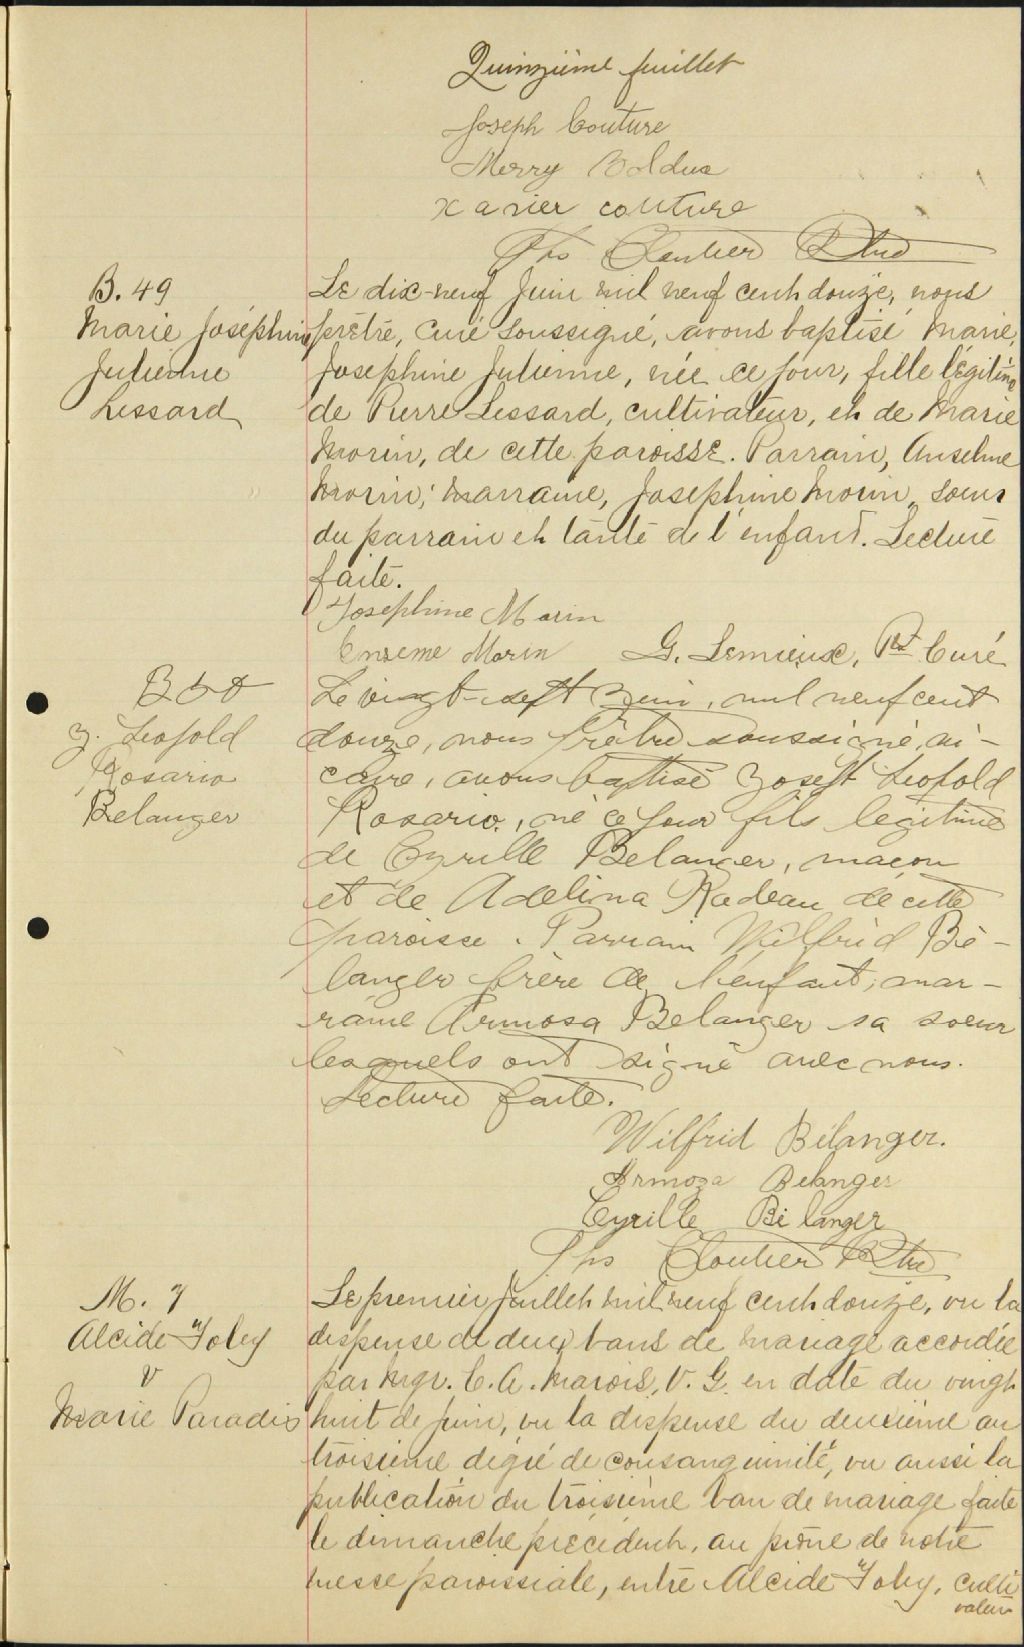 Quinzième feuillet
Joseph Couture
Merry Bolduc
xavier couture
Ths Cloutier Ptre
B. 49
Marie Joséphine
Julienne
Lessard
Le dix-neuf Juin mil neuf cent douze, nous
prêtre, curé soussigné, avons baptisé Marie,
Josephine Julienne, née ce jour, fille légitime
de Pierre Lessard, cultivateur, et de Marie
Morin, de cette paroisse. Parrain, Anselme
Morin; marraine, Josephine Morin, soeur
du parrain et tante de l'enfant. Lecture
faite.
Josephine Morin
Enseme Morin G. Lemieux, Ptre Curé
B 50
J. Leopold
Rosario
Belanger
Le vingt-sept Juin, mil neuf cent
douze, nous prêtre soussigné, vi-
caire, avons baptisé Joseph Leopold
Rosario, né ce jour fils légitime
de Cyrille Belanger, maçon
et de Adelina Nadeau de cette
paroisse. Parrain Wilfrid Bé-
langer frère de l'enfant; mar-
raine Armosa Belanger sa soeur
lesquels ont signé avec nous.
Lecture faite.
Wilfrid Bélanger.
Armoza Belanger
Cyrille Bélanger
Ths Cloutier Ptre
M. 7
Alcide Foley
V
Marie Paradis
Le premier Juillet mil neuf cent douze, vu la
dispense de deux bans de mariage accordée
par Mgr. C. A. Marois, V. G. en date du vingt
huit de juin, vu la dispense du deuxième au
troisième dégré de consanguinité, vu aussi la
publication du troisième ban de mariage faite
le dimanche précédent, au prône de notre
messe paroissiale, entre Alcide Foley, culti
vateur